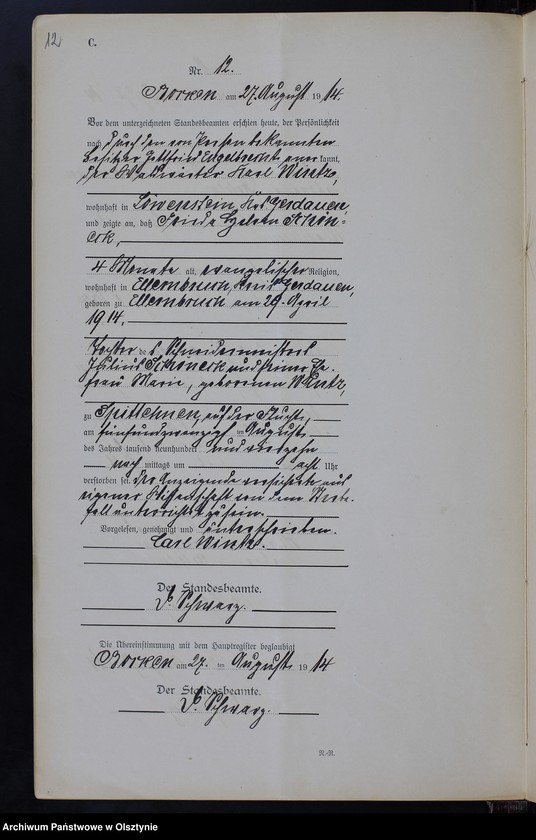 12
C.
Nr. 12.
Borken am 27. August 1914.
Vor dem unterzeichneten Standesbeamten erschien heute, der Persönlichkeit
nach durch den von Person bekannten
Besitzer Gottfried Engelbrecht anerkannt,
der Karl
wohnhaft in Löwenstein, Krs. Gerdauen,
und zeigte an, daß Frieda Helene
4 Monate alt, evangelischer Religion,
wohnhaft in Ellernbruch, Kreis Gerdauen,
geboren zu Ellernbruch am 29. April
1914,
Tochter des Schneidermeisters
Julius und seiner Ehe-
frau Marie, geborenen
zu auf der Flucht,
am fünfundzwanzigsten August
des Jahres tausend neunhundert und vierzehn
nach mittags um acht Uhr
verstorben sei. Der Anzeigende versicherte aus
eigener Wissenschaft von dem Sterbe-
fall unterrichtet zu sein.
Vorgelesen, genehmigt und unterschrieben.
Carl
Der Standesbeamte.
Schwarz.
Die Übereinstimmung mit dem Hauptregister beglaubigt
Borken am 27. ten August 1914
Der Standesbeamte.
Schwarz.
N.-R.
Archiwum Państwowe w Olsztynie